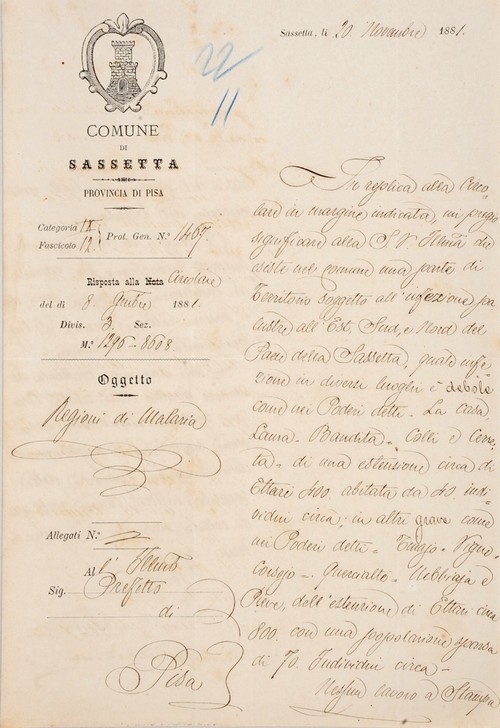 Sassetta, li 20. Novembre 1881.
22
11
COMUNE
DI
SASSETTA
PROVINCIA DI PISA
Categoria II
Fascicolo 12
Prot. Gen. N.° 1467.
Risposta alla Nota Circolare
del dì 8 1881.
Divis. 3. Sez.
N.° 1295-8608.
Oggetto
Regioni di Malaria
Allegati N.°
Al l'
Sig. Prefetto
di
Pisa
In replica alla Circo
lare in margine indicata, mi pregio
significare alla S. V. Illma che
esiste nel comune una parte di
Territorio soggetto all'infezione pa
lustre all'Est, Sud, e Nord del
Paese della Sassetta, quale infe
zione in diversi luoghi è debole
come nei Poderi detti = La Casa
Bandita = Colli e
ta = di una estensione circa di
Ettari 400 abitata da 40 indi
vidui circa; in altri grave come
nei Poderi detti =
= Quercialte =
Pieve, dell'estensione di Ettari circa
800. con una popolazione sparsa
di 70. Individui circa =
Nessun lavoro a Stampa